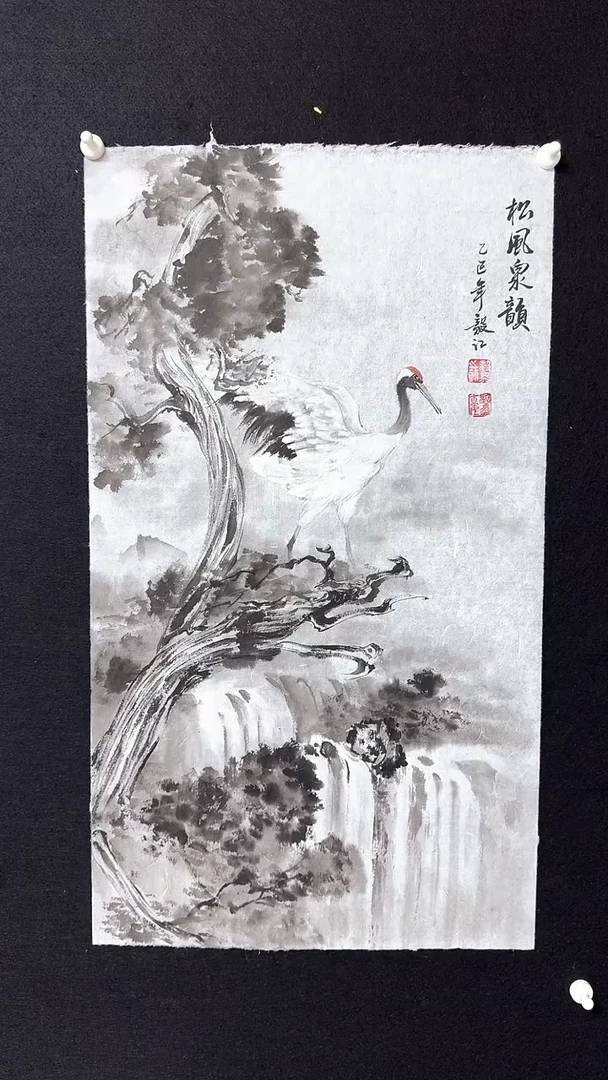 松風泉韻
乙巳年毅江